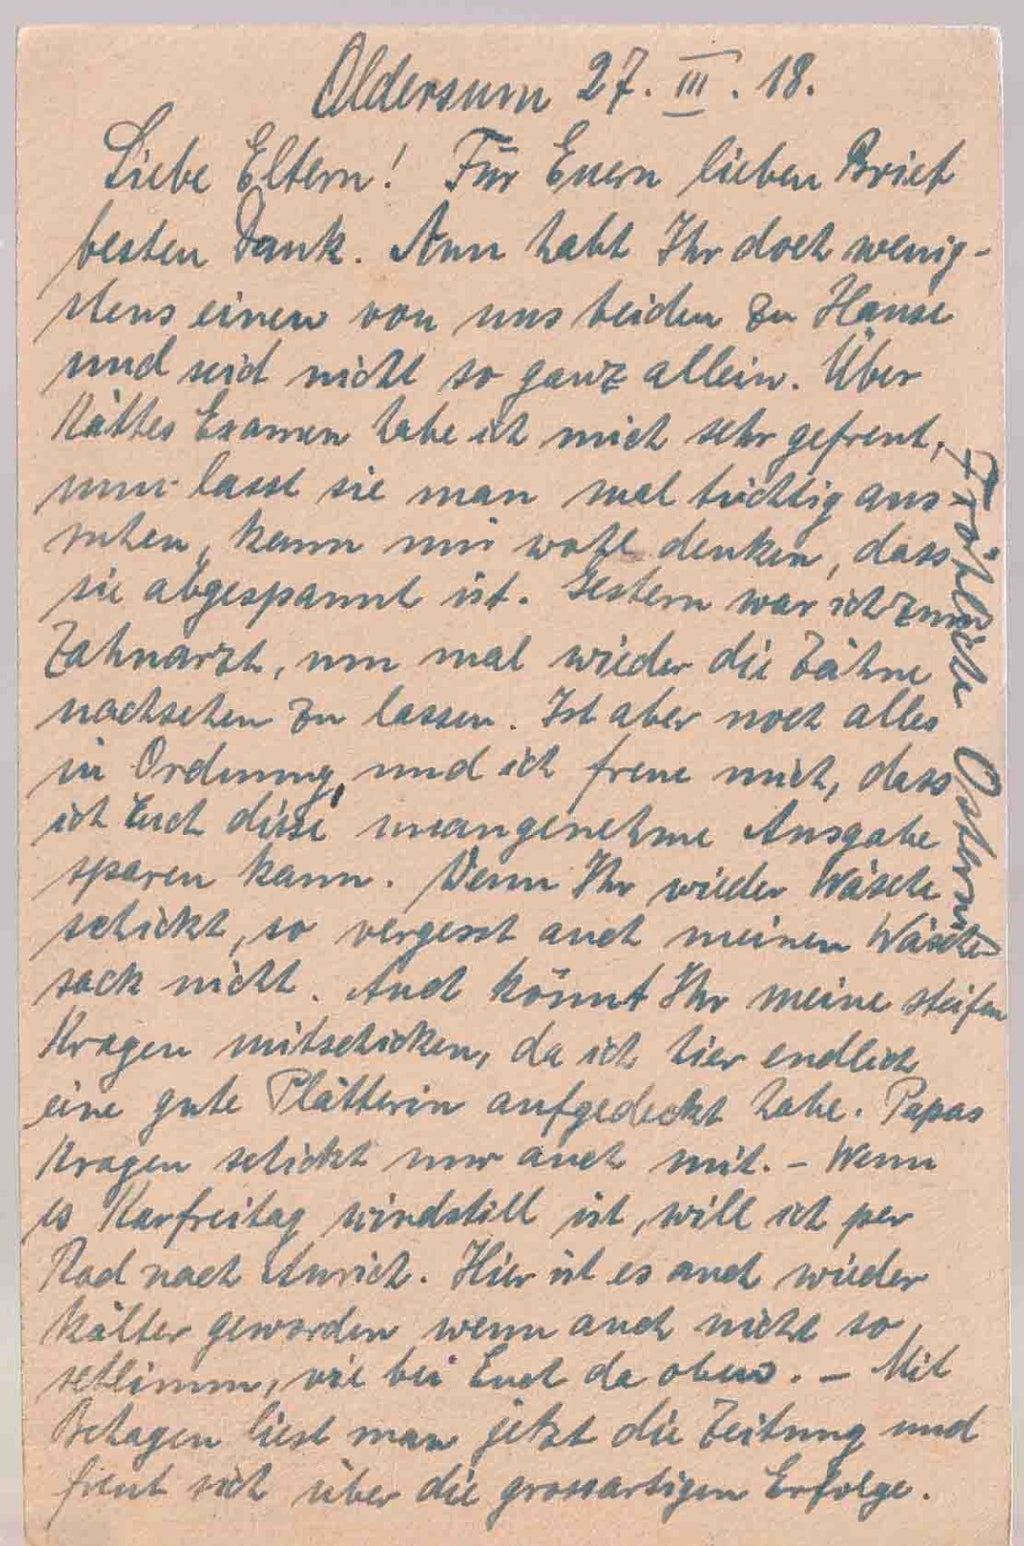 Oldersum 27. III. 18.
Liebe Eltern! Für Euern lieben Brief
besten Dank. Nun habt Ihr doch wenig-
stens einen von uns beiden zu Hause
und seid nicht so ganz allein. Über
Käthes Examen habe ich mich sehr gefreut,
nun lasst sie man mal tüchtig aus
ruhen, kann mir wohl denken, dass
sie abgespannt ist. Gestern war ich zum
Zahnarzt, um mal wieder die Zähne
nachsehen zu lassen. Ist aber noch alles
in Ordnung, und ich freue mich, dass
ich Euch diese unangenehme Ausgabe
sparen kann. Wenn Ihr wieder Wäsche
schickt, so vergesst auch meinen Wäsche
sack nicht. Auch könnt Ihr meine steifen
Kragen mitschicken, da ich hier endlich
eine gute Plätterin aufgedeckt habe. Papas
Kragen schickt nur auch mit. – Wenn
es Karfreitag windstill ist, will ich per
Rad nach Aurich. Hier ist es auch wieder
kälter geworden wenn auch nicht so
schlimm, wie bei Euch da oben. – Mit
Behagen liest man jetzt die Zeitung und
freut sich über die grossartigen Erfolge.
Fröhliche Ostern